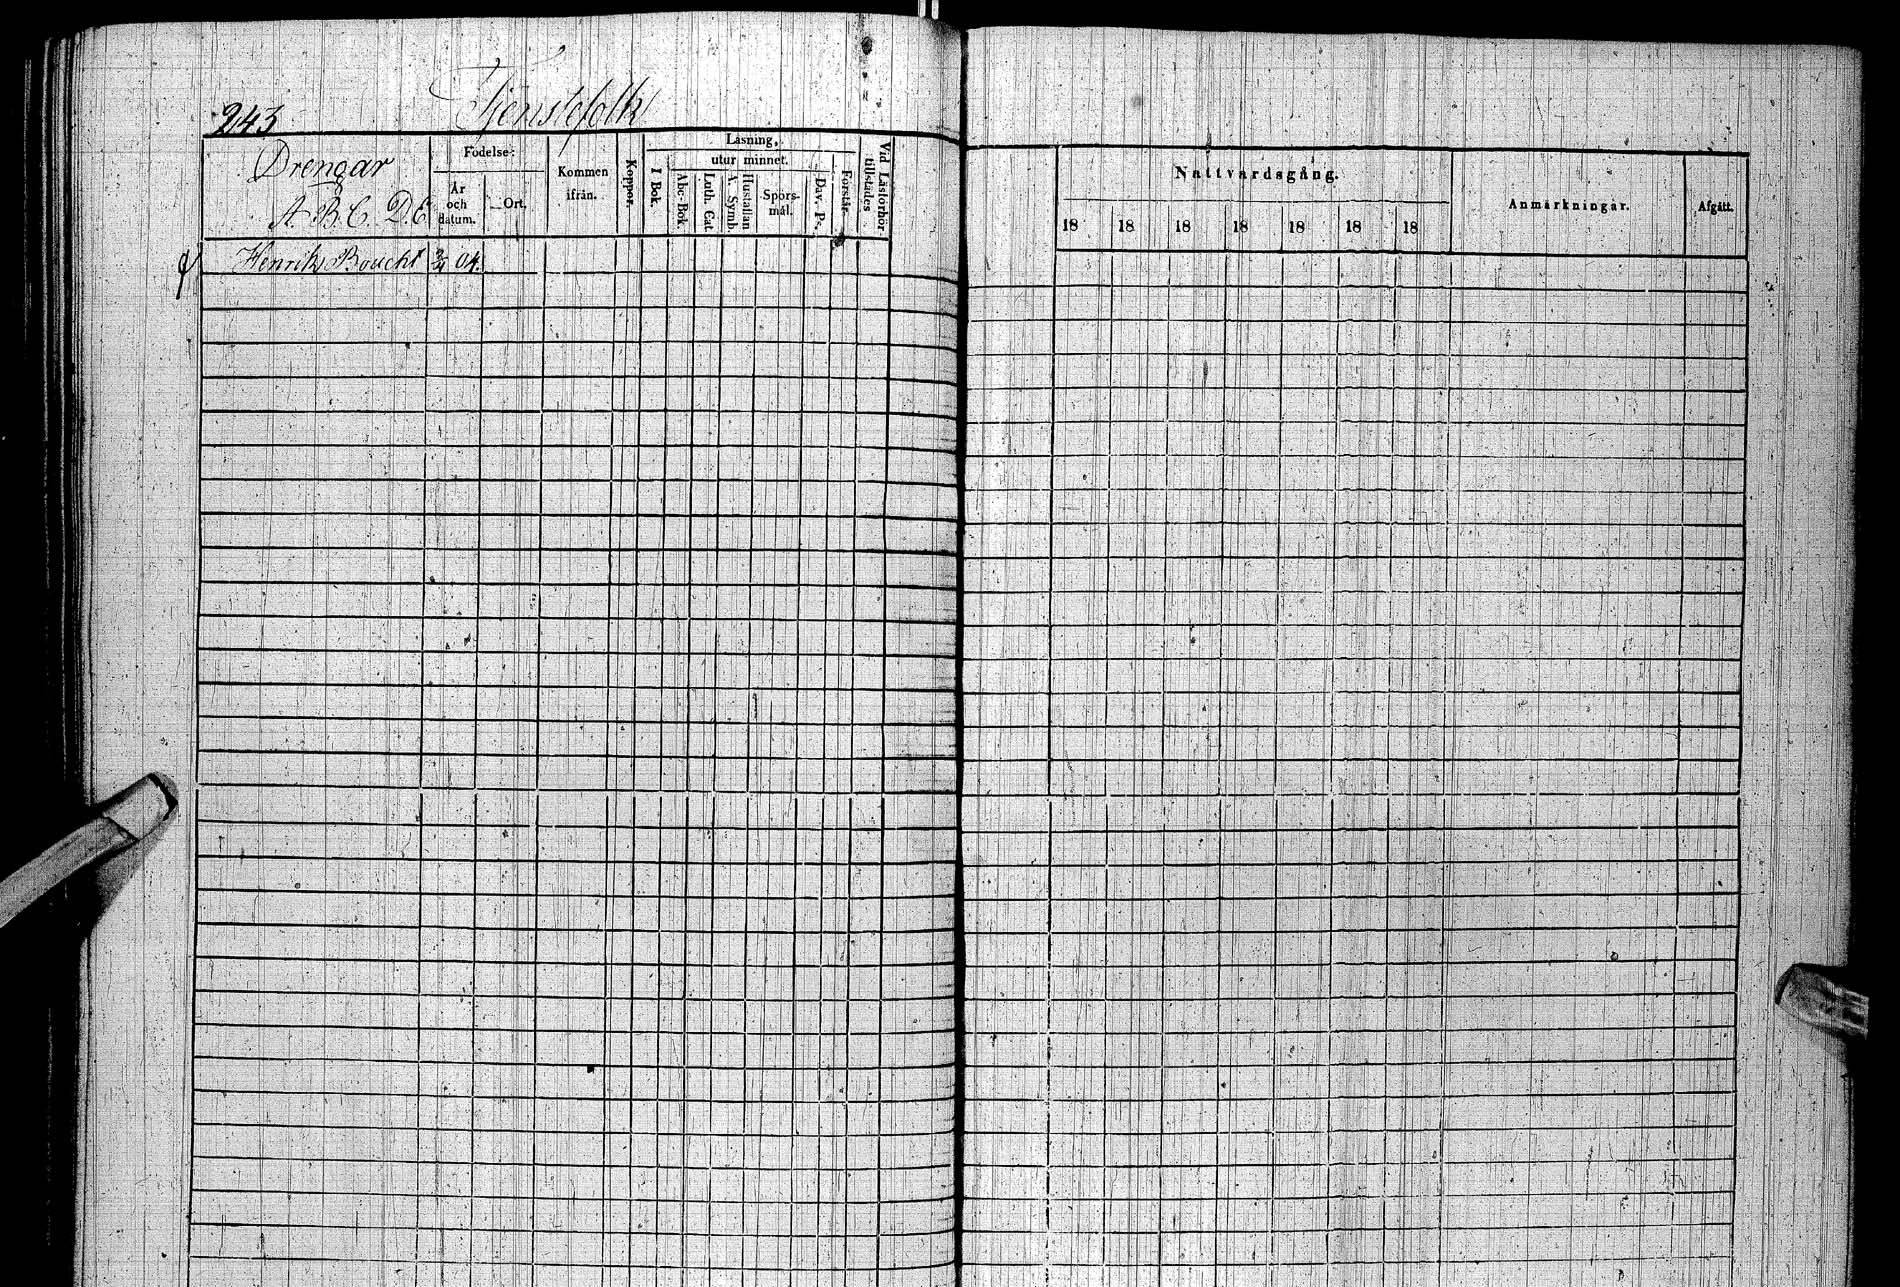 243
Tjenstefolk
Drengar
A. B. C. D. E.
Födelse:
År
och
datum.
Ort.
Kommen
ifrån.
Koppor.
Läsning,
utur minnet.
I Bok.
Abc-Bok.
Luth. Cat.
Hustaflan
A. Symb.
Spörs-
mål.
Dav. Ps.
Förstår.
Vid Läsförhör
tillstädes
Nattvardsgång.
18 18 18 18 18 18 18
Anmärkningar.
Afgått.
HenrikBoucht 2/4 04.